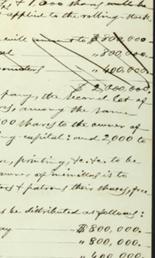 & 1,000 shares will be
applied to the rolling-stock.
will amount to $800,000.
" 800,000.
" 400,000.
$2,000,000.
pany, the second lot of
among the same
00 shares to the owner of
ing capital: and 2,000 to
printing, &c. &c. to be
owner of
& patrons their shares, free
be distributed as follows:
$800,000.
" 800,000.
" 400,000.